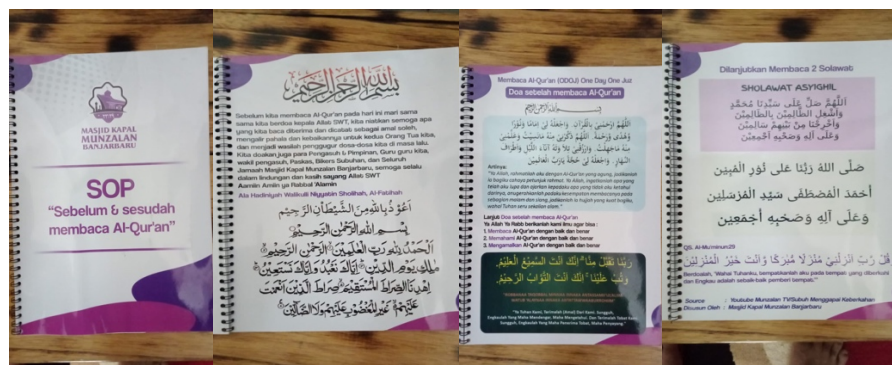 MASJID KAPAL
MUNZALAN
BANJARBARU
SOP
"Sebelum & sesudah
membaca Al-Qur'an"
بسم الله الرحمن الرحيم
Sebelum kita membaca Al-Qur'an pada hari ini mari sama
sama kita berdoa kepada Allah SWT, kita niatkan semoga apa
yang kita baca diterima dan dicatat sebagai amal soleh,
mengalir pahala dan kebaikannya untuk kedua Orang Tua kita,
dan menjadi wasilah penggugur dosa-dosa kita di masa lalu.
Kita doakan juga para Pengasuh & Pimpinan, Guru guru kita,
wakil pengasuh, Paskas, Bikers Subuhan, dan Seluruh
Jamaah Masjid Kapal Munzalan Banjarbaru, semoga selalu
dalam lindungan dan kasih sayang Allah SWT
Aamiin Amiin ya Rabbal 'Alamin
Ala Hadiniyah Walikulli Niyyatin Sholihah, Al-Fatihah
اَعُوْذُ بِاللهِ مِنَ الشَّيْطَانِ الرَّجِيْمِ
بِسْمِ اللهِ الرَّحْمٰنِ الرَّحِيْمِ
اَلْحَمْدُ لِلّٰهِ رَبِّ الْعٰلَمِيْنَ الرَّحْمٰنِ الرَّحِيْمِ
مٰلِكِ يَوْمِ الدِّيْنِ اِيَّاكَ نَعْبُدُ وَاِيَّاكَ نَسْتَعِيْنُ
اِهْدِنَا الصِّرَاطَ الْمُسْتَقِيْمَ صِرَاطَ الَّذِيْنَ اَنْعَمْتَ
عَلَيْهِمْ غَيْرِ الْمَغْضُوْبِ عَلَيْهِمْ وَلَا الضَّالِّيْنَ
Membaca Al-Qur'an (ODOJ) One Day One Juz
Doa setelah membaca Al-Qur'an
بسم الله الرحمن الرحيم
اَللّٰهُمَّ ارْحَمْنِيْ بِالْقُرْاٰنِ وَاجْعَلْهُ لِيْ اِمَامًا وَنُوْرًا
وَهُدًى وَرَحْمَةً اَللّٰهُمَّ ذَكِّرْنِيْ مِنْهُ مَانَسِيْتُ وَعَلِّمْنِيْ
مِنْهُ مَاجَهِلْتُ وَارْزُقْنِيْ تِلَاوَتَهُ اٰنَاءَ اللَّيْلِ وَاَطْرَافَ
النَّهَارِ وَاجْعَلْهُ لِيْ حُجَّةً يَارَبَّ الْعَالَمِيْنَ
Artinya:
Lanjut Doa setelah membaca Al-Qur'an
Ya Allah Ya Rabb berikanlah kami ilmu agar bisa :
1. Membaca Al-Qur'an dengan baik dan benar
2. Memahami Al-Qur'an dengan baik dan benar
3. Mengamalkan Al-Qur'an dengan baik dan benar
رَبَّنَا تَقَبَّلْ مِنَّا اِنَّكَ اَنْتَ السَّمِيْعُ الْعَلِيْمُ
وَتُبْ عَلَيْنَا اِنَّكَ اَنْتَ التَّوَّابُ الرَّحِيْمُ
Dilanjutkan Membaca 2 Solawat
SHOLAWAT ASYIGHIL
اَللّٰهُمَّ صَلِّ عَلَى سَيِّدِنَا مُحَمَّدٍ
وَأَشْغِلِ الظَّالِمِيْنَ بِالظَّالِمِيْنَ
وَأَخْرِجْنَا مِنْ بَيْنِهِمْ سَالِمِيْنَ
وَعَلَى آلِهِ وَصَحْبِهِ أَجْمَعِيْنَ
صَلَّى اللهُ رَبُّنَا عَلَى نُوْرِ الْمُبِيْنِ
أَحْمَدَ الْمُصْطَفَى سَيِّدِ الْمُرْسَلِيْنَ
وَعَلَى آلِهِ وَصَحْبِهِ أَجْمَعِيْنَ
QS. Al-Mu'minun:29
وَقُلْ رَّبِّ اَنْزِلْنِيْ مُنْزَلًا مُّبٰرَكًا وَّاَنْتَ خَيْرُ الْمُنْزِلِيْنَ
Berdoalah, 'Wahai Tuhanku, tempatkanlah aku pada tempat yang diberkahi
dan Engkau adalah sebaik-baik pemberi tempat.'"
Source : Youtube Munzalan TV/Subuh Menggapai Keberkahan
Disusun Oleh : Masjid Kapal Munzalan Banjarbaru